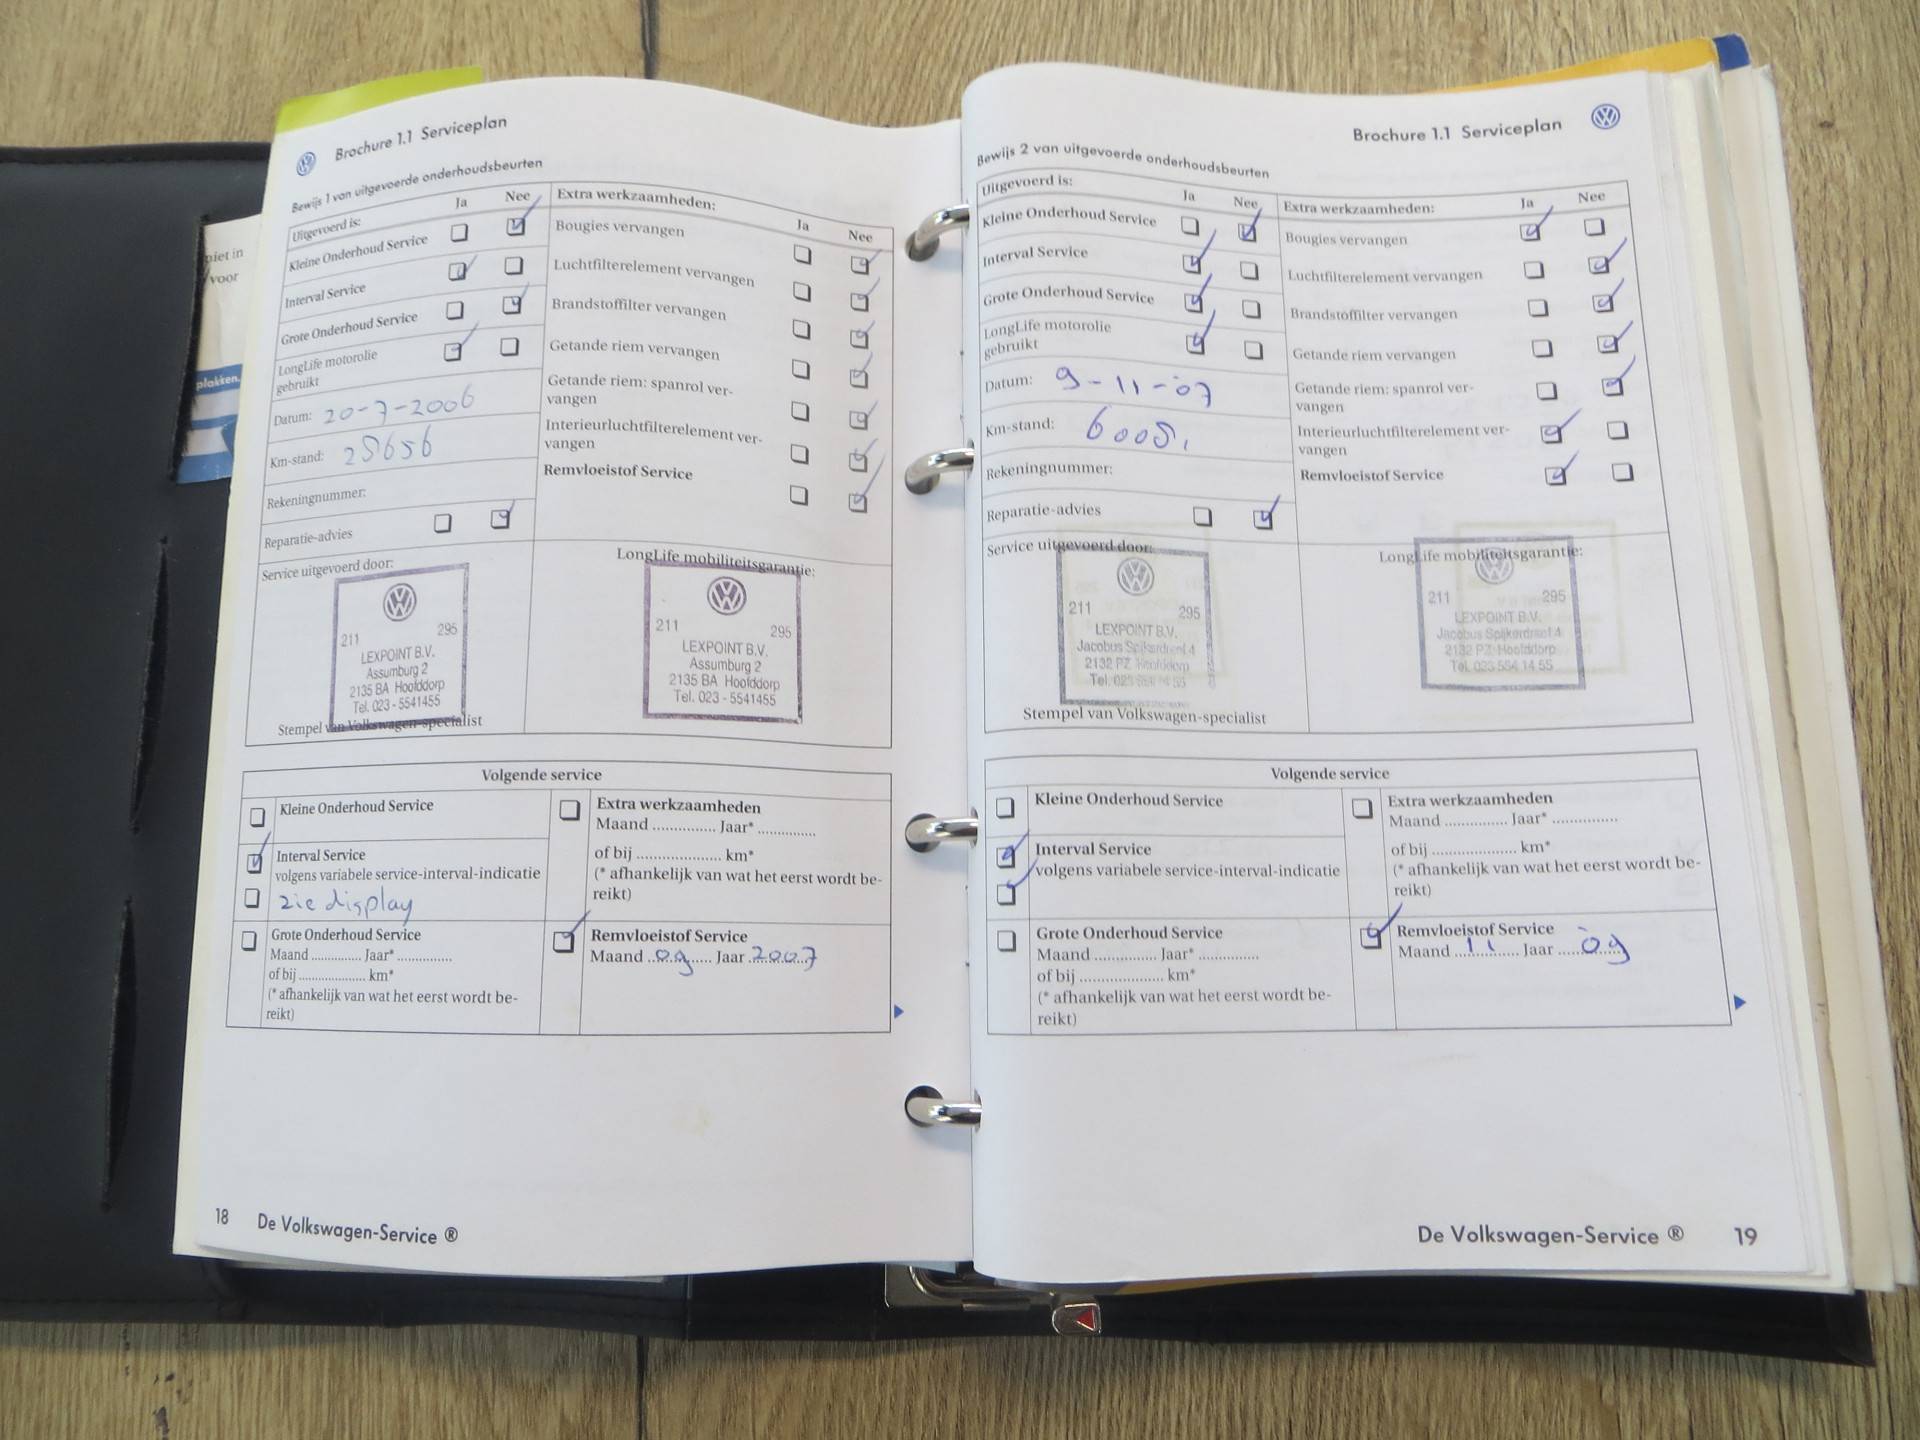 niet in
voor
plakken.
Brochure 1.1 Serviceplan
Bewijs 1 van uitgevoerde onderhoudsbeurten
Uitgevoerd is: Ja Nee
Kleine Onderhoud Service
Interval Service
Grote Onderhoud Service
LongLife motorolie
gebruikt
Datum: 20-7-2006
Km-stand: 25656
Rekeningnummer:
Reparatie-advies
Extra werkzaamheden: Ja Nee
Bougies vervangen
Luchtfilterelement vervangen
Brandstoffilter vervangen
Getande riem vervangen
Getande riem: spanrol ver-
vangen
Interieurluchtfilterelement ver-
vangen
Remvloeistof Service
Service uitgevoerd door:
211 295
LEXPOINT B.V.
Assumburg 2
2135 BA Hoofddorp
Tel. 023 - 5541455
Stempel van Volkswagen-specialist
LongLife mobiliteitsgarantie:
211 295
LEXPOINT B.V.
Assumburg 2
2135 BA Hoofddorp
Tel. 023 - 5541455
Volgende service
Kleine Onderhoud Service
Interval Service
volgens variabele service-interval-indicatie
zie display
Grote Onderhoud Service
Maand .............. Jaar* ...............
of bij .................. km*
(* afhankelijk van wat het eerst wordt be-
reikt)
Extra werkzaamheden
Maand ................ Jaar* ...............
of bij ...................... km*
(* afhankelijk van wat het eerst wordt be-
reikt)
Remvloeistof Service
Maand 09 Jaar 2007
18 De Volkswagen-Service ®
Brochure 1.1 Serviceplan
Bewijs 2 van uitgevoerde onderhoudsbeurten
Uitgevoerd is: Ja Nee
Kleine Onderhoud Service
Interval Service
Grote Onderhoud Service
LongLife motorolie
gebruikt
Datum: 9-11-07
Km-stand:
Rekeningnummer:
Reparatie-advies
Extra werkzaamheden: Ja Nee
Bougies vervangen
Luchtfilterelement vervangen
Brandstoffilter vervangen
Getande riem vervangen
Getande riem: spanrol ver-
vangen
Interieurluchtfilterelement ver-
vangen
Remvloeistof Service
Service uitgevoerd door:
211 295
LEXPOINT B.V.
Jacobus Spijkerdreef 4
2132 PZ Hoofddorp
Tel. 023 554 14 55
Stempel van Volkswagen-specialist
LongLife mobiliteitsgarantie:
211 295
LEXPOINT B.V.
Jacobus Spijkerdreef 4
2132 PZ Hoofddorp
Tel. 023 554 14 55
Volgende service
Kleine Onderhoud Service
Interval Service
volgens variabele service-interval-indicatie
Grote Onderhoud Service
Maand ................ Jaar* ................
of bij ...................... km*
(* afhankelijk van wat het eerst wordt be-
reikt)
Extra werkzaamheden
Maand ................ Jaar* ................
of bij ...................... km*
(* afhankelijk van wat het eerst wordt be-
reikt)
Remvloeistof Service
Maand 11 Jaar 09
De Volkswagen-Service ® 19